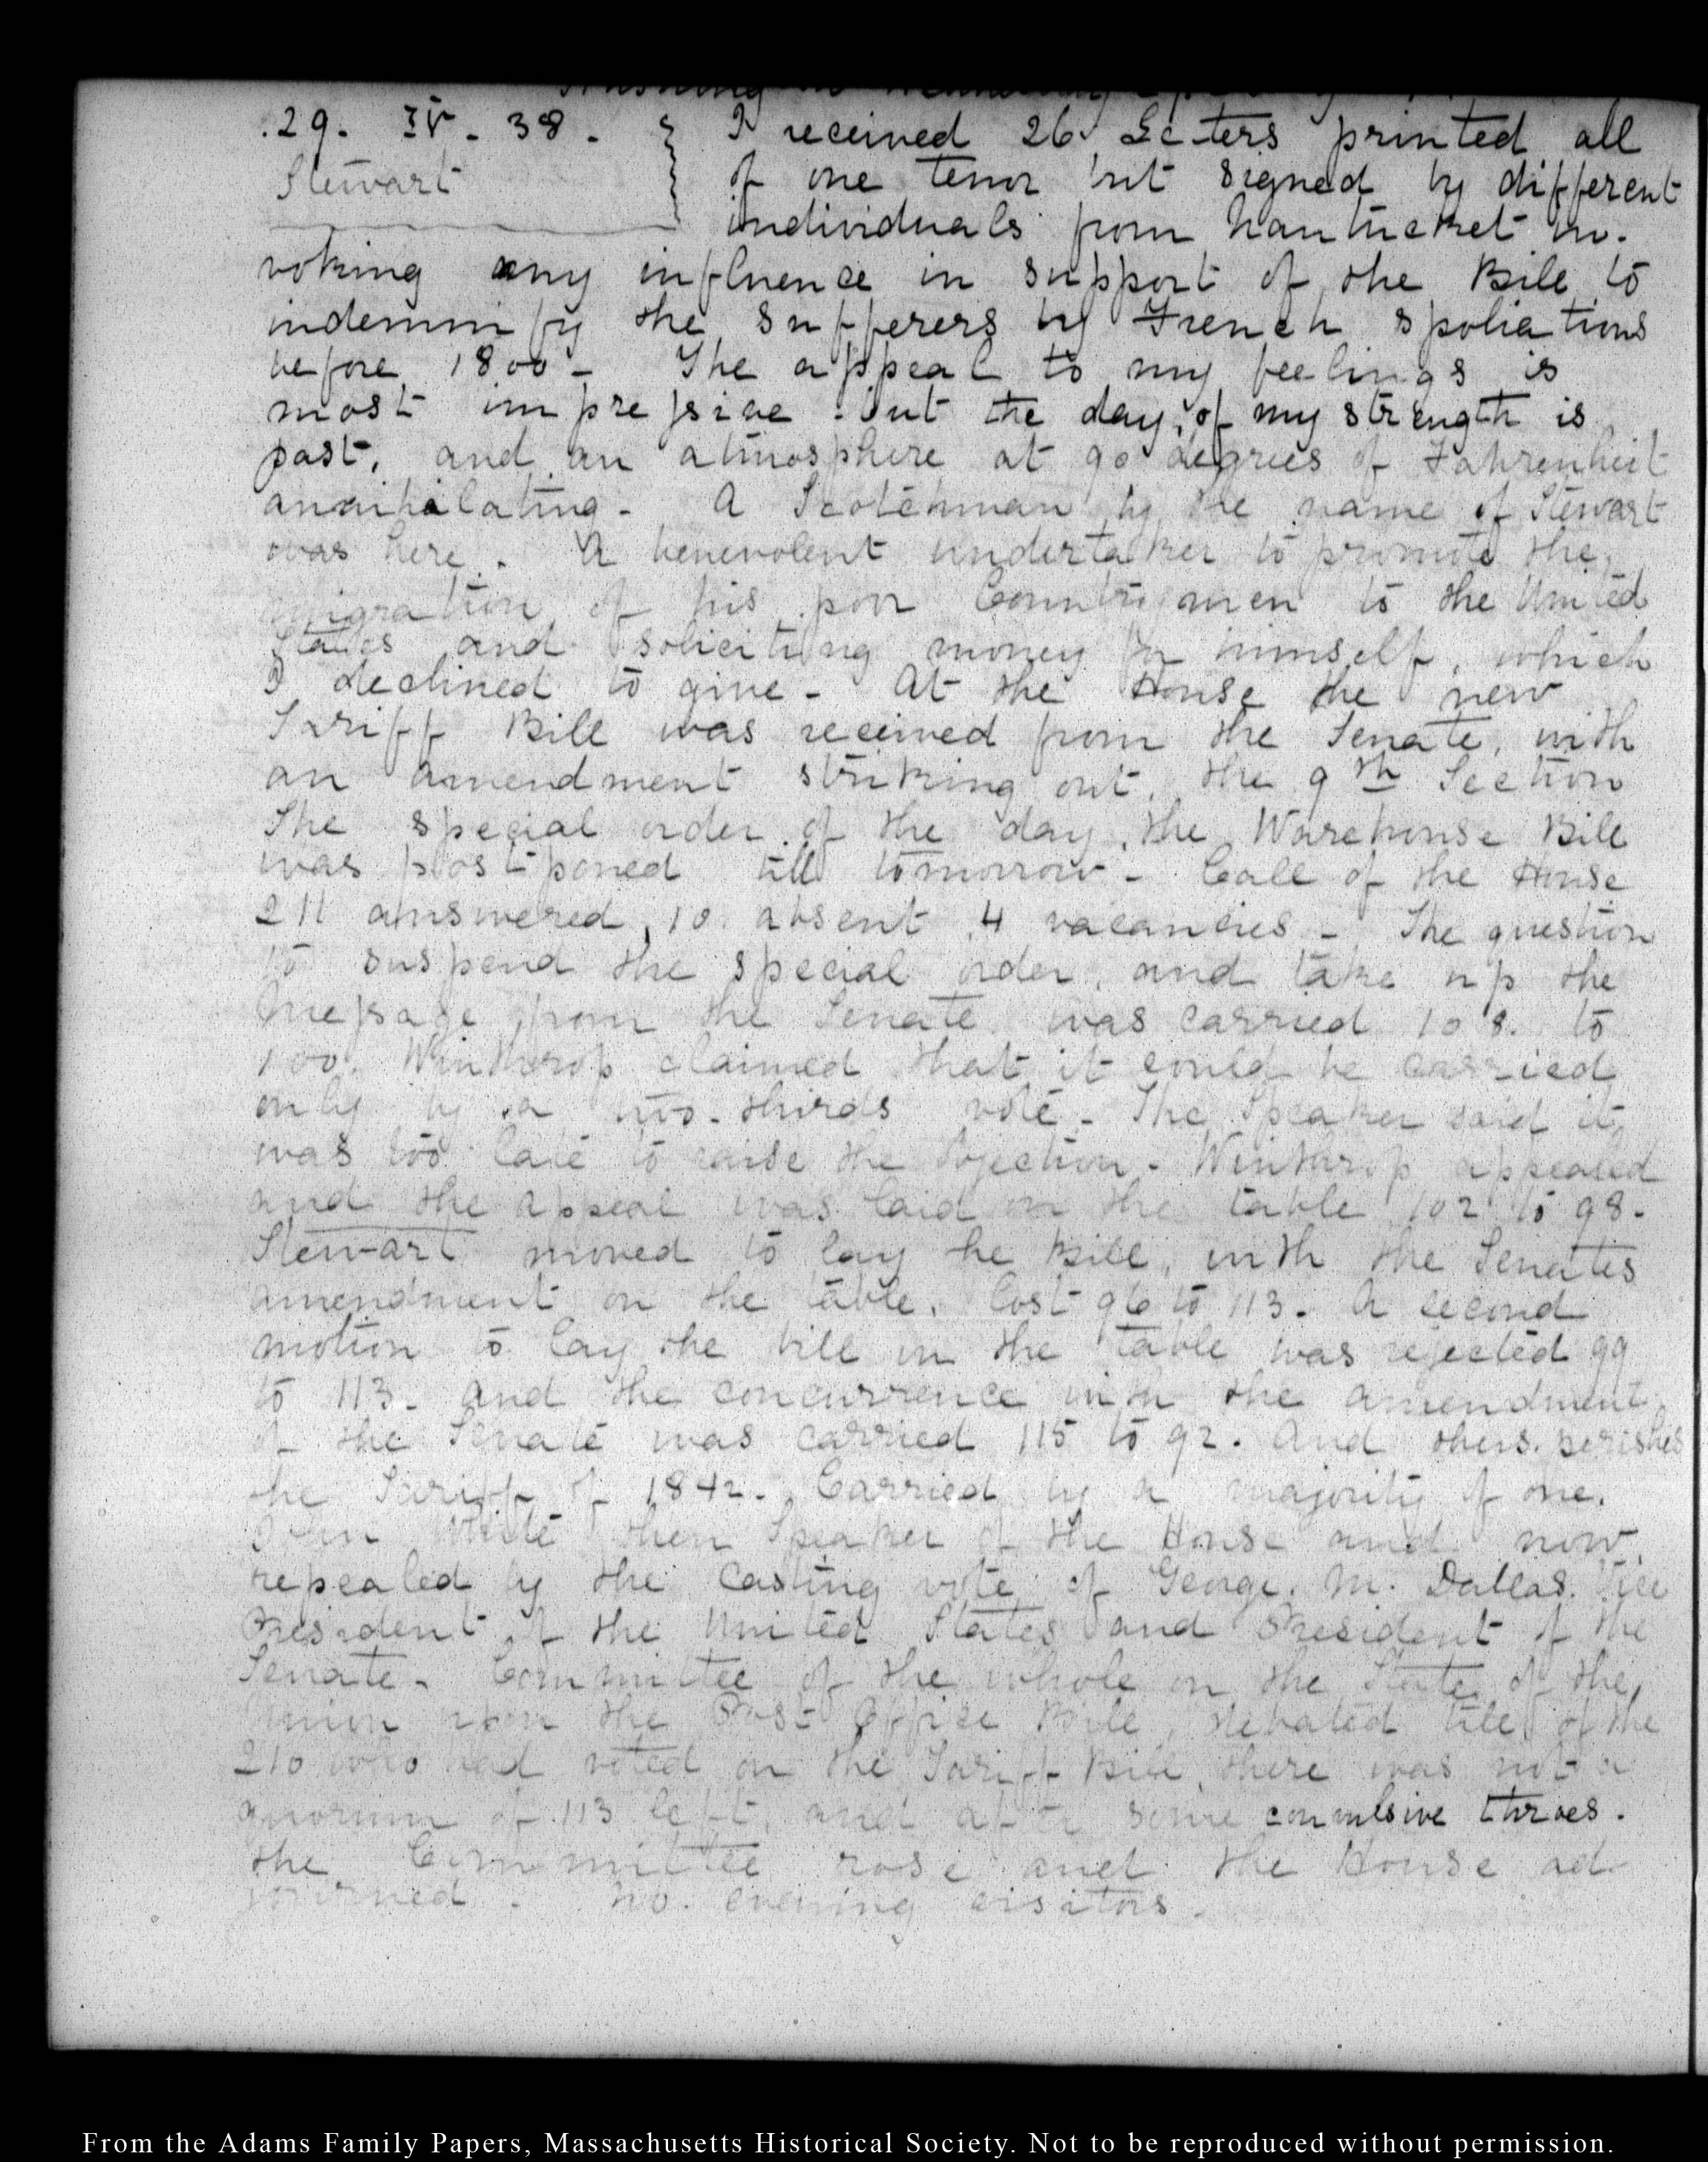 29. IV. 38.
Stewart
I received 26 Letters printed all
of one tenor but signed by different
individuals from Nantucket in-
voking my influence in support of the Bill to
indemnify the sufferers by French spoliations
before 1800 - The appeal to my feelings is
most impressive - but the day of my strength is
past, and an atmosphere at 90 degrees of Fahrenheit
annihilating - A Scotchman by the name of Stewart
was here - A benevolent undertaker to promote the
migration of his poor Countrymen to the United
States and soliciting money for himself, which
I declined to give - At the House the new
Tariff Bill was received from the Senate, with
an amendment striking out the 9th Section
The special order of the day, the Warehouse Bill
was postponed till tomorrow - Call of the House
211 answered, 10 absent 4 vacancies - The question
to suspend the special order, and take up the
message from the Senate was carried 108 to
100. Winthrop claimed that it could be carried
only by a two-thirds vote - The Speaker said it
was too late to raise the objection - Winthrop appealed
and the appeal was laid on the table 102 to 98 -
Stewart moved to lay the Bill, with the Senates
amendment on the table. lost 96 to 113 - A second
motion to lay the bill on the table was rejected 99
to 113 - and the concurrence with the amendment
of the Senate was carried 115 to 92. And thus perishes
the Tariff of 1842 - Carried by a majority of one.
John White then Speaker of the House and now
repealed by the casting vote of George M. Dallas Vice
President of the United States and President of the
Senate - Committee of the whole on the State of the
Union upon the Post Office Bill, debated till of the
210 who had voted on the Tariff Bill, there was not a
quorum of 113 left, and after some convulsive throes.
the Committee rose and the House ad-
journed - No evening visitors.
From the Adams Family Papers, Massachusetts Historical Society. Not to be reproduced without permission.